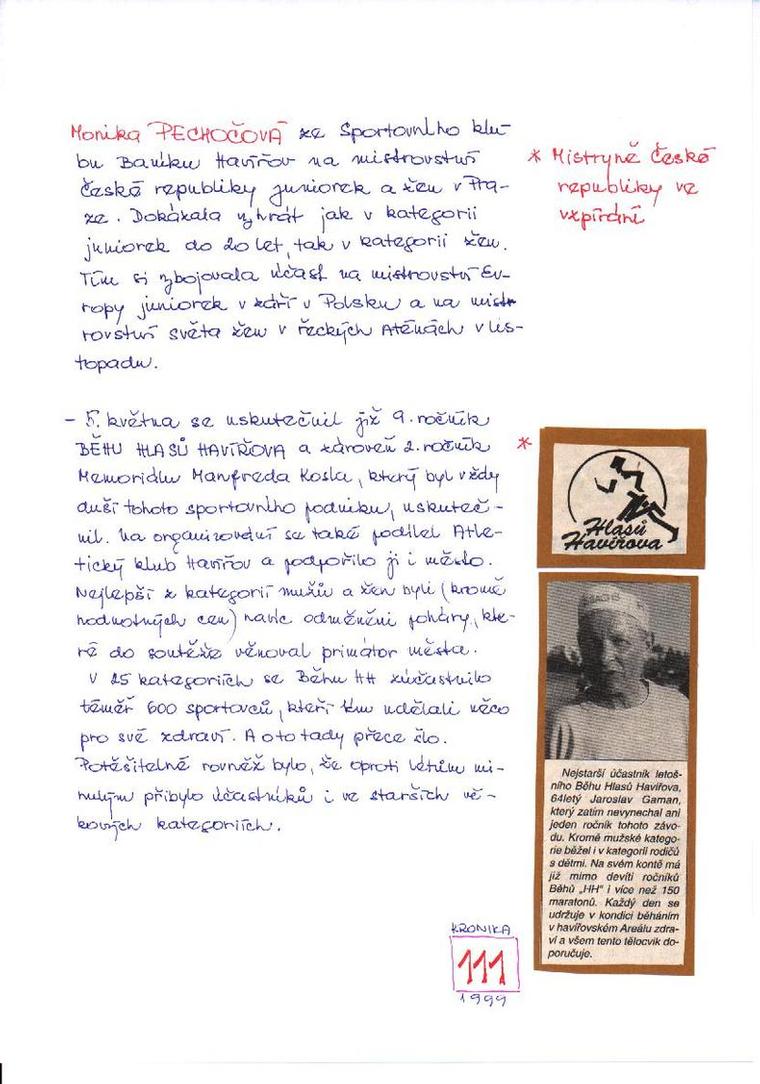 Monika PECHOČOVÁ ze Sportovního klu-
bu Baníku Havířov na mistrovství
České republiky juniorek a žen v Pra-
ze. Dokázala vyhrát jak v kategorii
juniorek do 20 let, tak v kategorii žen.
Tím si vybojovala účast na mistrovství Ev-
ropy juniorek v září v Polsku a na mist-
rovství světa žen v řeckých Aténách v lis-
topadu.
* Mistryně České
republiky ve
vzpírání
- 5. května se uskutečnil již 9. ročník
BĚHU HLASŮ HAVÍŘOVA a zároveň 2. ročník
Memoriálu Manfreda Kosla, který byl vždy
duší tohoto sportovního podniku, uskuteč-
nil. Na organizování se také podílel Atle-
tický klub Havířov a podpořilo ji i město.
Nejlepší z kategorií mužů a žen byli (kromě
hodnotných cen) navíc odměněni poháry, kte-
ré do soutěže věnoval primátor města.
V 25 kategoriích se Běhu HH zúčastnilo
téměř 600 sportovců, kteří tím udělali něco
pro své zdraví. A o to tady přece šlo.
Potěšitelné rovněž bylo, že oproti létům mi-
nulým přibylo účastníků i ve starších vě-
kových kategoriích.
*
Hlasů
Havířova
Nejstarší účastník letoš-
ního Běhu Hlasů Havířova,
64letý Jaroslav Gaman,
který zatím nevynechal ani
jeden ročník tohoto závo-
du. Kromě mužské katego-
rie běžel i v kategorii rodičů
s dětmi. Na svém kontě má
již mimo devíti ročníků
Běhů „HH" i více než 150
maratonů. Každý den se
udržuje v kondici běháním
v havířovském Areálu zdra-
ví a všem tento tělocvik do-
poručuje.
KRONIKA
111
1999